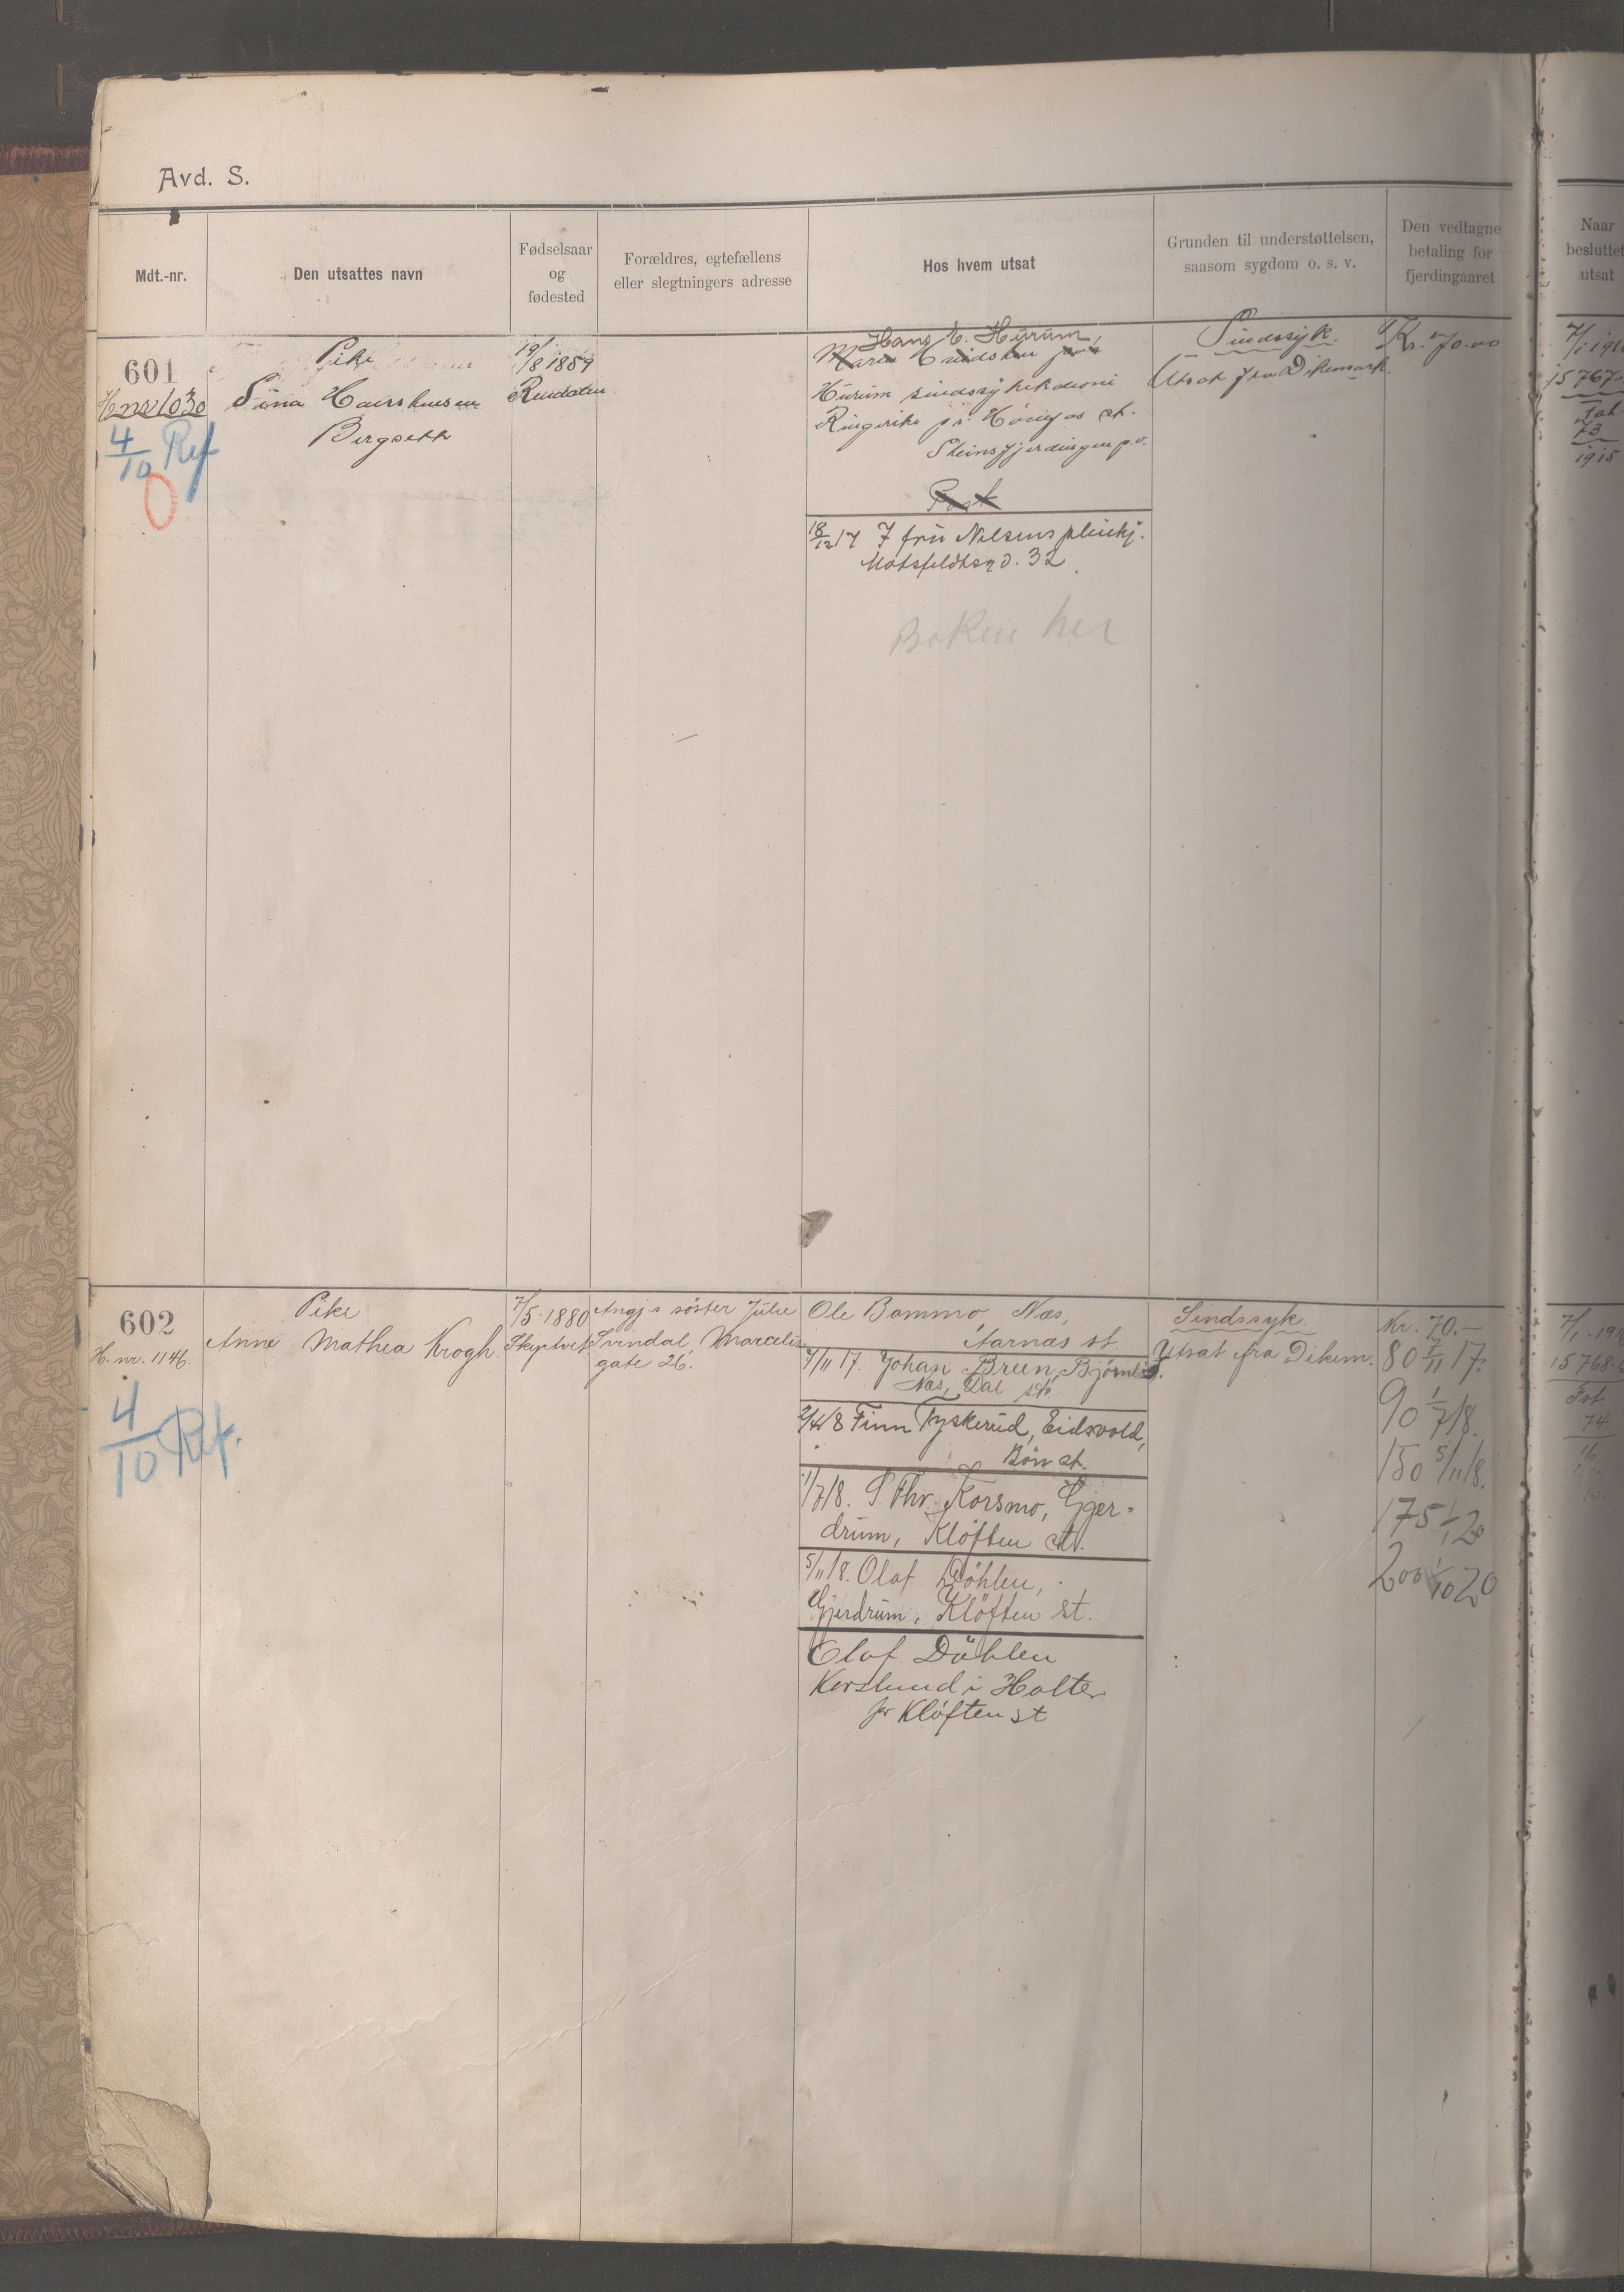 Avd. S.
Mdt.-nr.
Den utsattes navn
Fødselsaar
og
fødested
Forældres, egtefællens
eller slegtningers adresse
Hos hvem utsat
Grunden til understøttelsen,
saasom sygdom o. s. v.
Den vedtagne
betaling for
fjerdingaaret
Naar
besluttet
utsat
601
H.nr 1030
4/10 Ref
0
Pike
Bergseth
/8 1859
Rendalen
Hans E. Hurum,
Hurum sindssykekoloni
Ringerike pr. Hønefos st.
Steinsfjerdingen p.o.
Post
18/12 17 frü Nilsens pleiehj.
Motzfeldtsgd. 32
Boken her
Sindssyk.
Utsat fra Dikemark.
Kr. 70.00
7/1 191
15767
Fat.
73
1915
602
H. nr. 1146.
4/10 Ref.
Pike
Anne Mathea Krogh.
7/5 1880
Skiptvet
Angj.s söster Julie
Svindal, Marcelis
gate 26.
Ole Bommo, Nes,
Aarnas st.
7/11 17. Johan Breen, Bjørnli
Nes, Dal st.
2/4 18 Finn Tyskerud, Eidsvold,
Bön st.
1/7 18. P. Thv. Korsmo, Gjer-
drum, Klöften st.
5/11 18. Olaf Döhlen,
Gjerdrum, Klöften st.
Olaf Döhlen
Korslund i Holter
pr Kløften st
Sindssyk.
Utsat fra Dikem.
Kr. 70.—
80 7/11 17.
90 1/7 18.
150 5/11 18.
175 1/1 20
200 1/10 20
7/1 191
15768
Fat
74